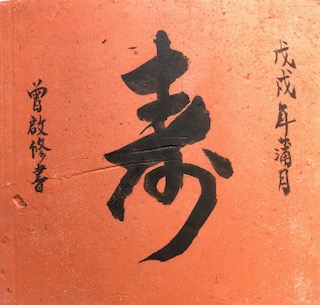 戊戌年蒲月
寿
曾啟修書